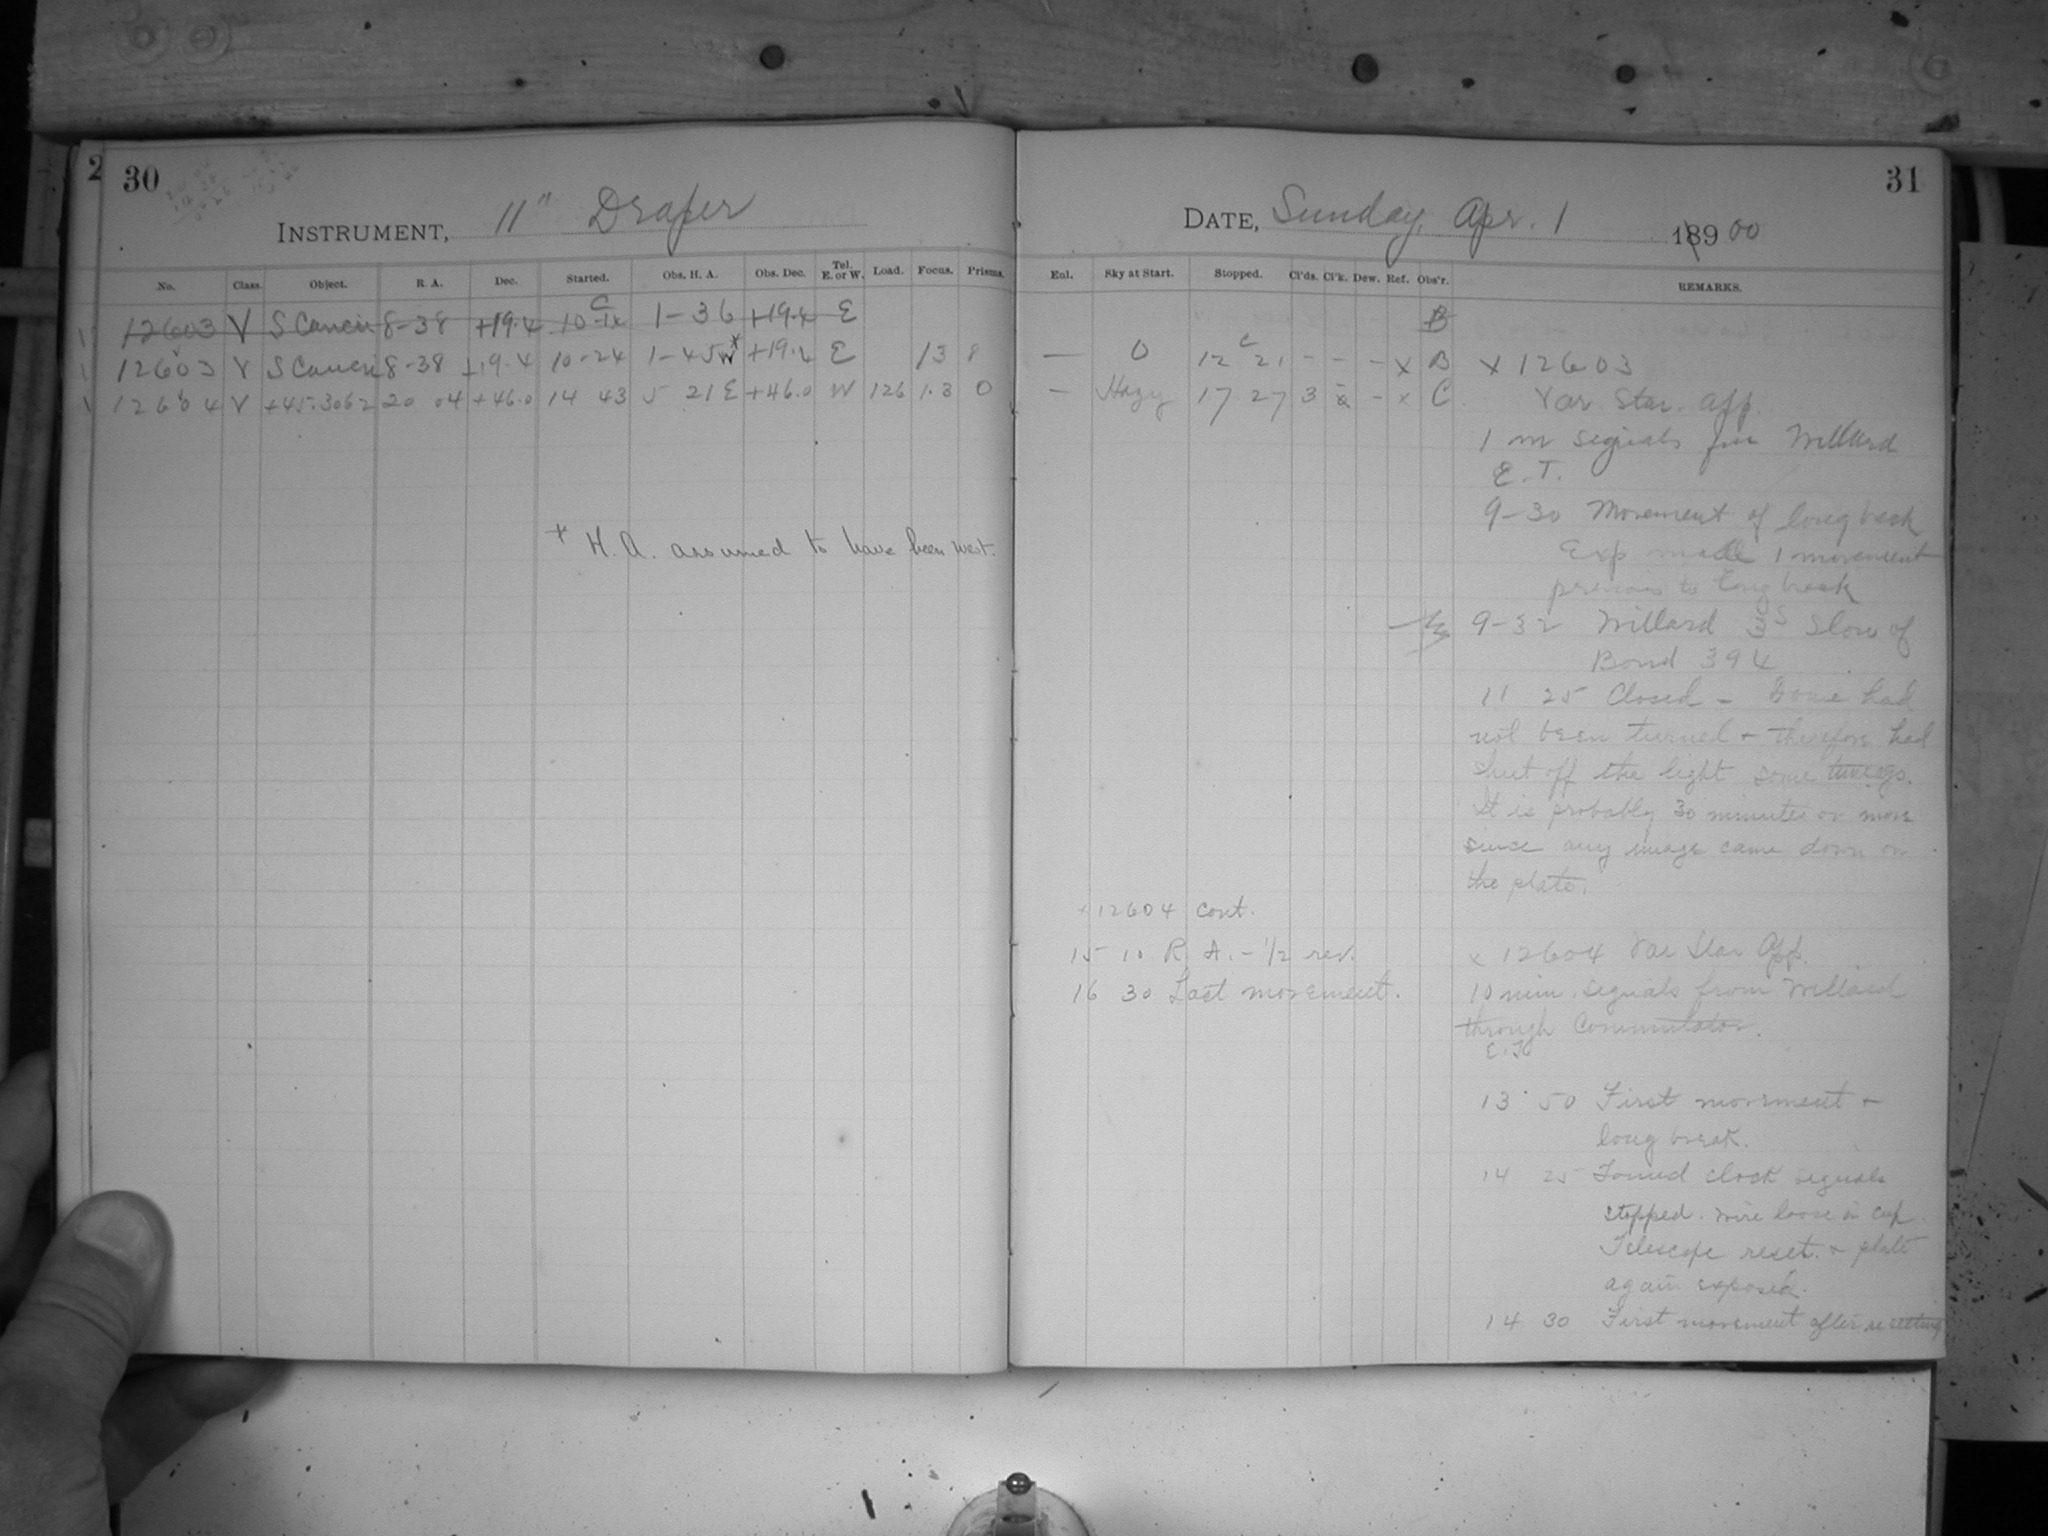 2
30
INSTRUMENT, 11" Draper
No. Class. Object. R. A. Dec. Started. Obs. H. A. Obs. Dec. Tel. E. or W. Load. Focus. Prisms.
12603 V S Cancri 8-38 +19.4 10-1x 1-36 +19.4 E
12603 V S Cancri 8-38 +19.4 10-24 1-45 W* +19.4 E 13 8
12604 V +45.3062 20 04 +46.0 14 43 5 21 E +46.0 W 126 1.3 0
* H. A. assumed to have been west.
31
DATE, Sunday, Apr. 1 189 00
Enl. Sky at Start. Stopped. Cl'ds. Cl'k. Dew. Ref. Obs'r. REMARKS.
B
— 0 12 21 - - - x B x 12603
— Hazy 17 27 3 - x C Var. Star. App.
1 m signals from Willard
E. T.
9-30 Movement of long break
Exp made 1 movement
previous to long break
9-32 Willard 3s Slow of
Bond 394
11 25 Closed - Dome had
not been turned + therefore had
shut off the light some time ago.
It is probably 30 minutes or more
since any image came down on
the plate.
x 12604 cont.
15 10 R. A. - 1/2 rev.
16 30 Last movement.
x 12604 Var Star App.
10 min. signals from Willard
through Commutator.
E. T.
13 50 First movement +
long break.
14 25 Found clock signals
stopped. wire loose in cup.
Telescope reset. + plate
again exposed.
14 30 First movement after resetting